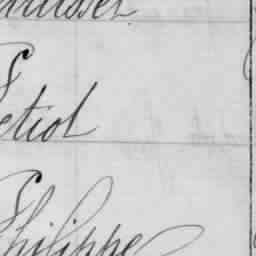 Petiot
Philippe